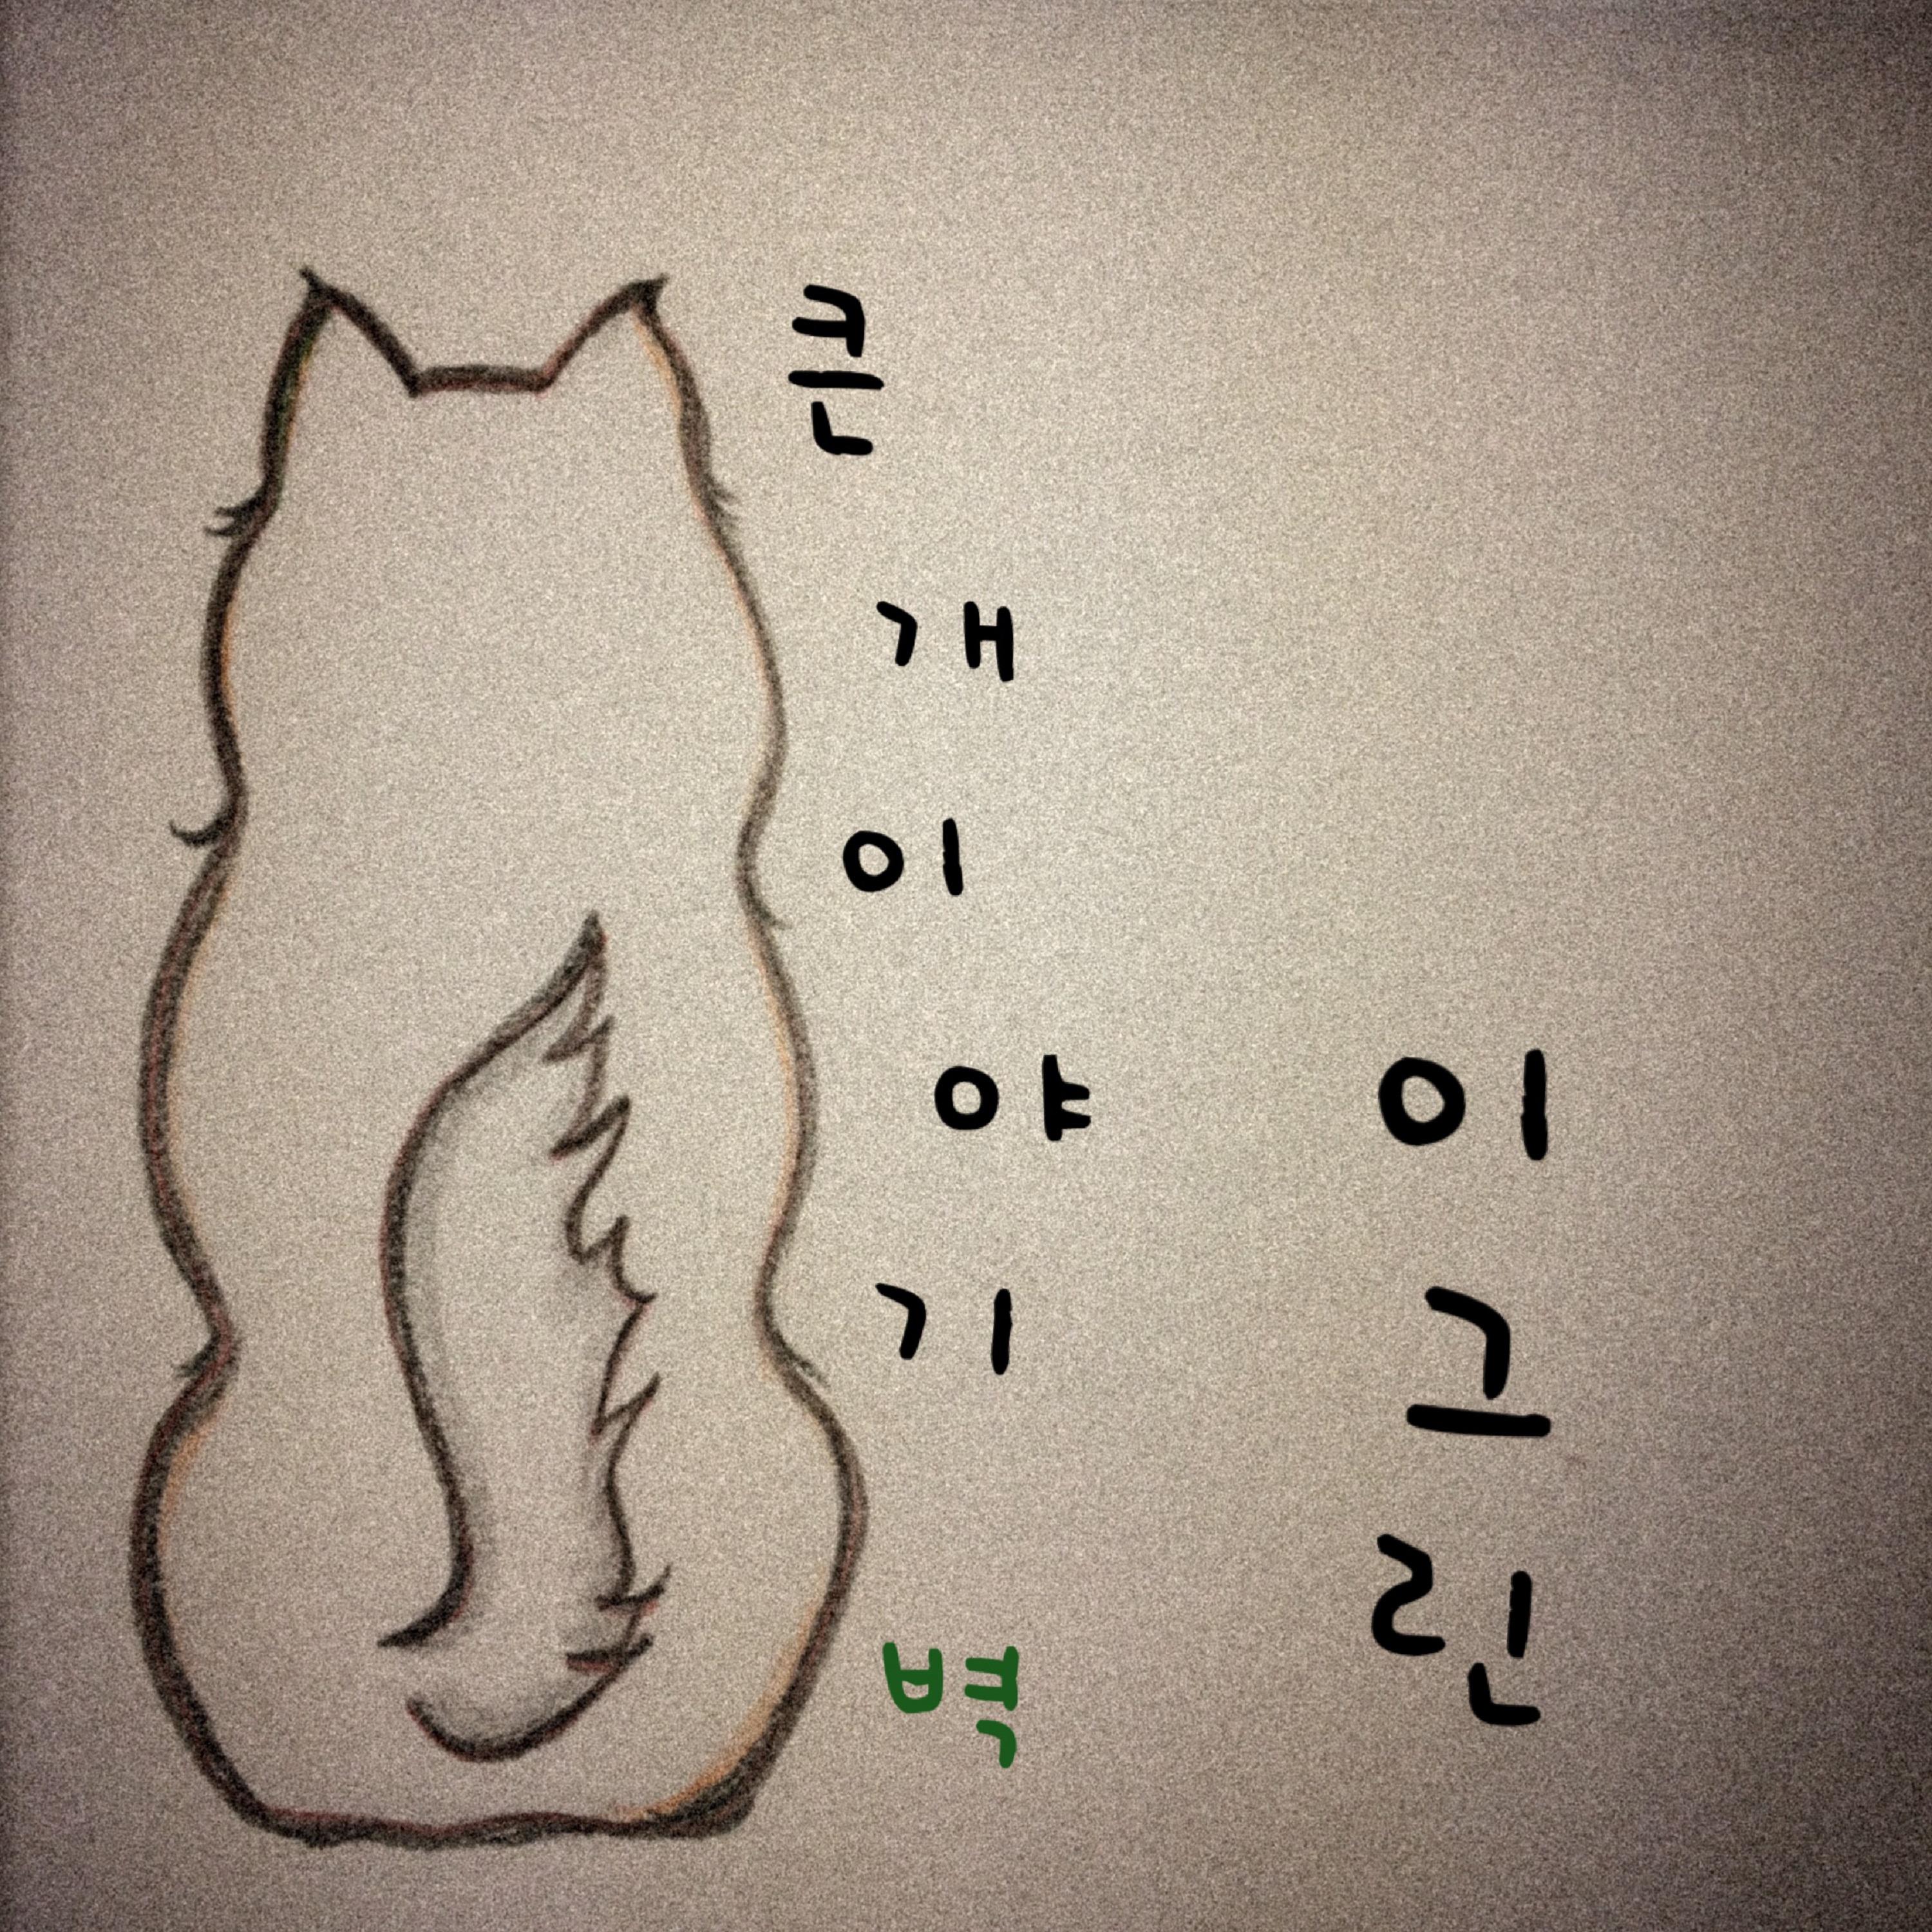 큰 개 이야기
벽
이그린